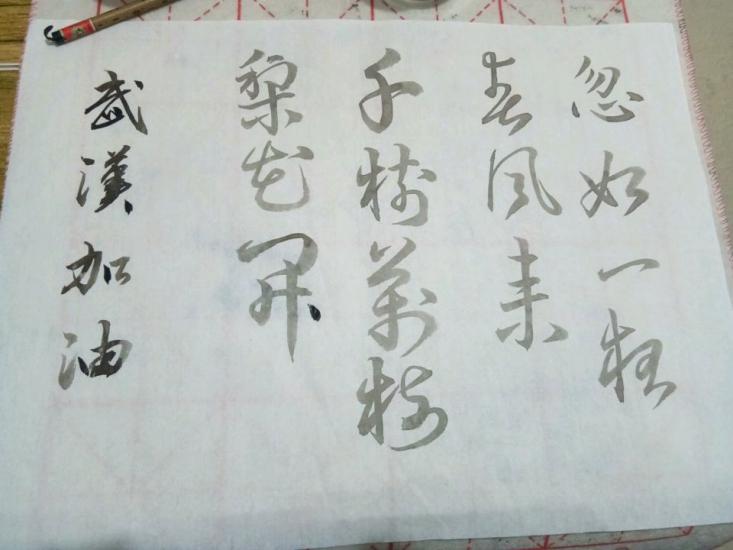 忽如一夜
春風来
千樹萬樹
梨花開
武漢加油